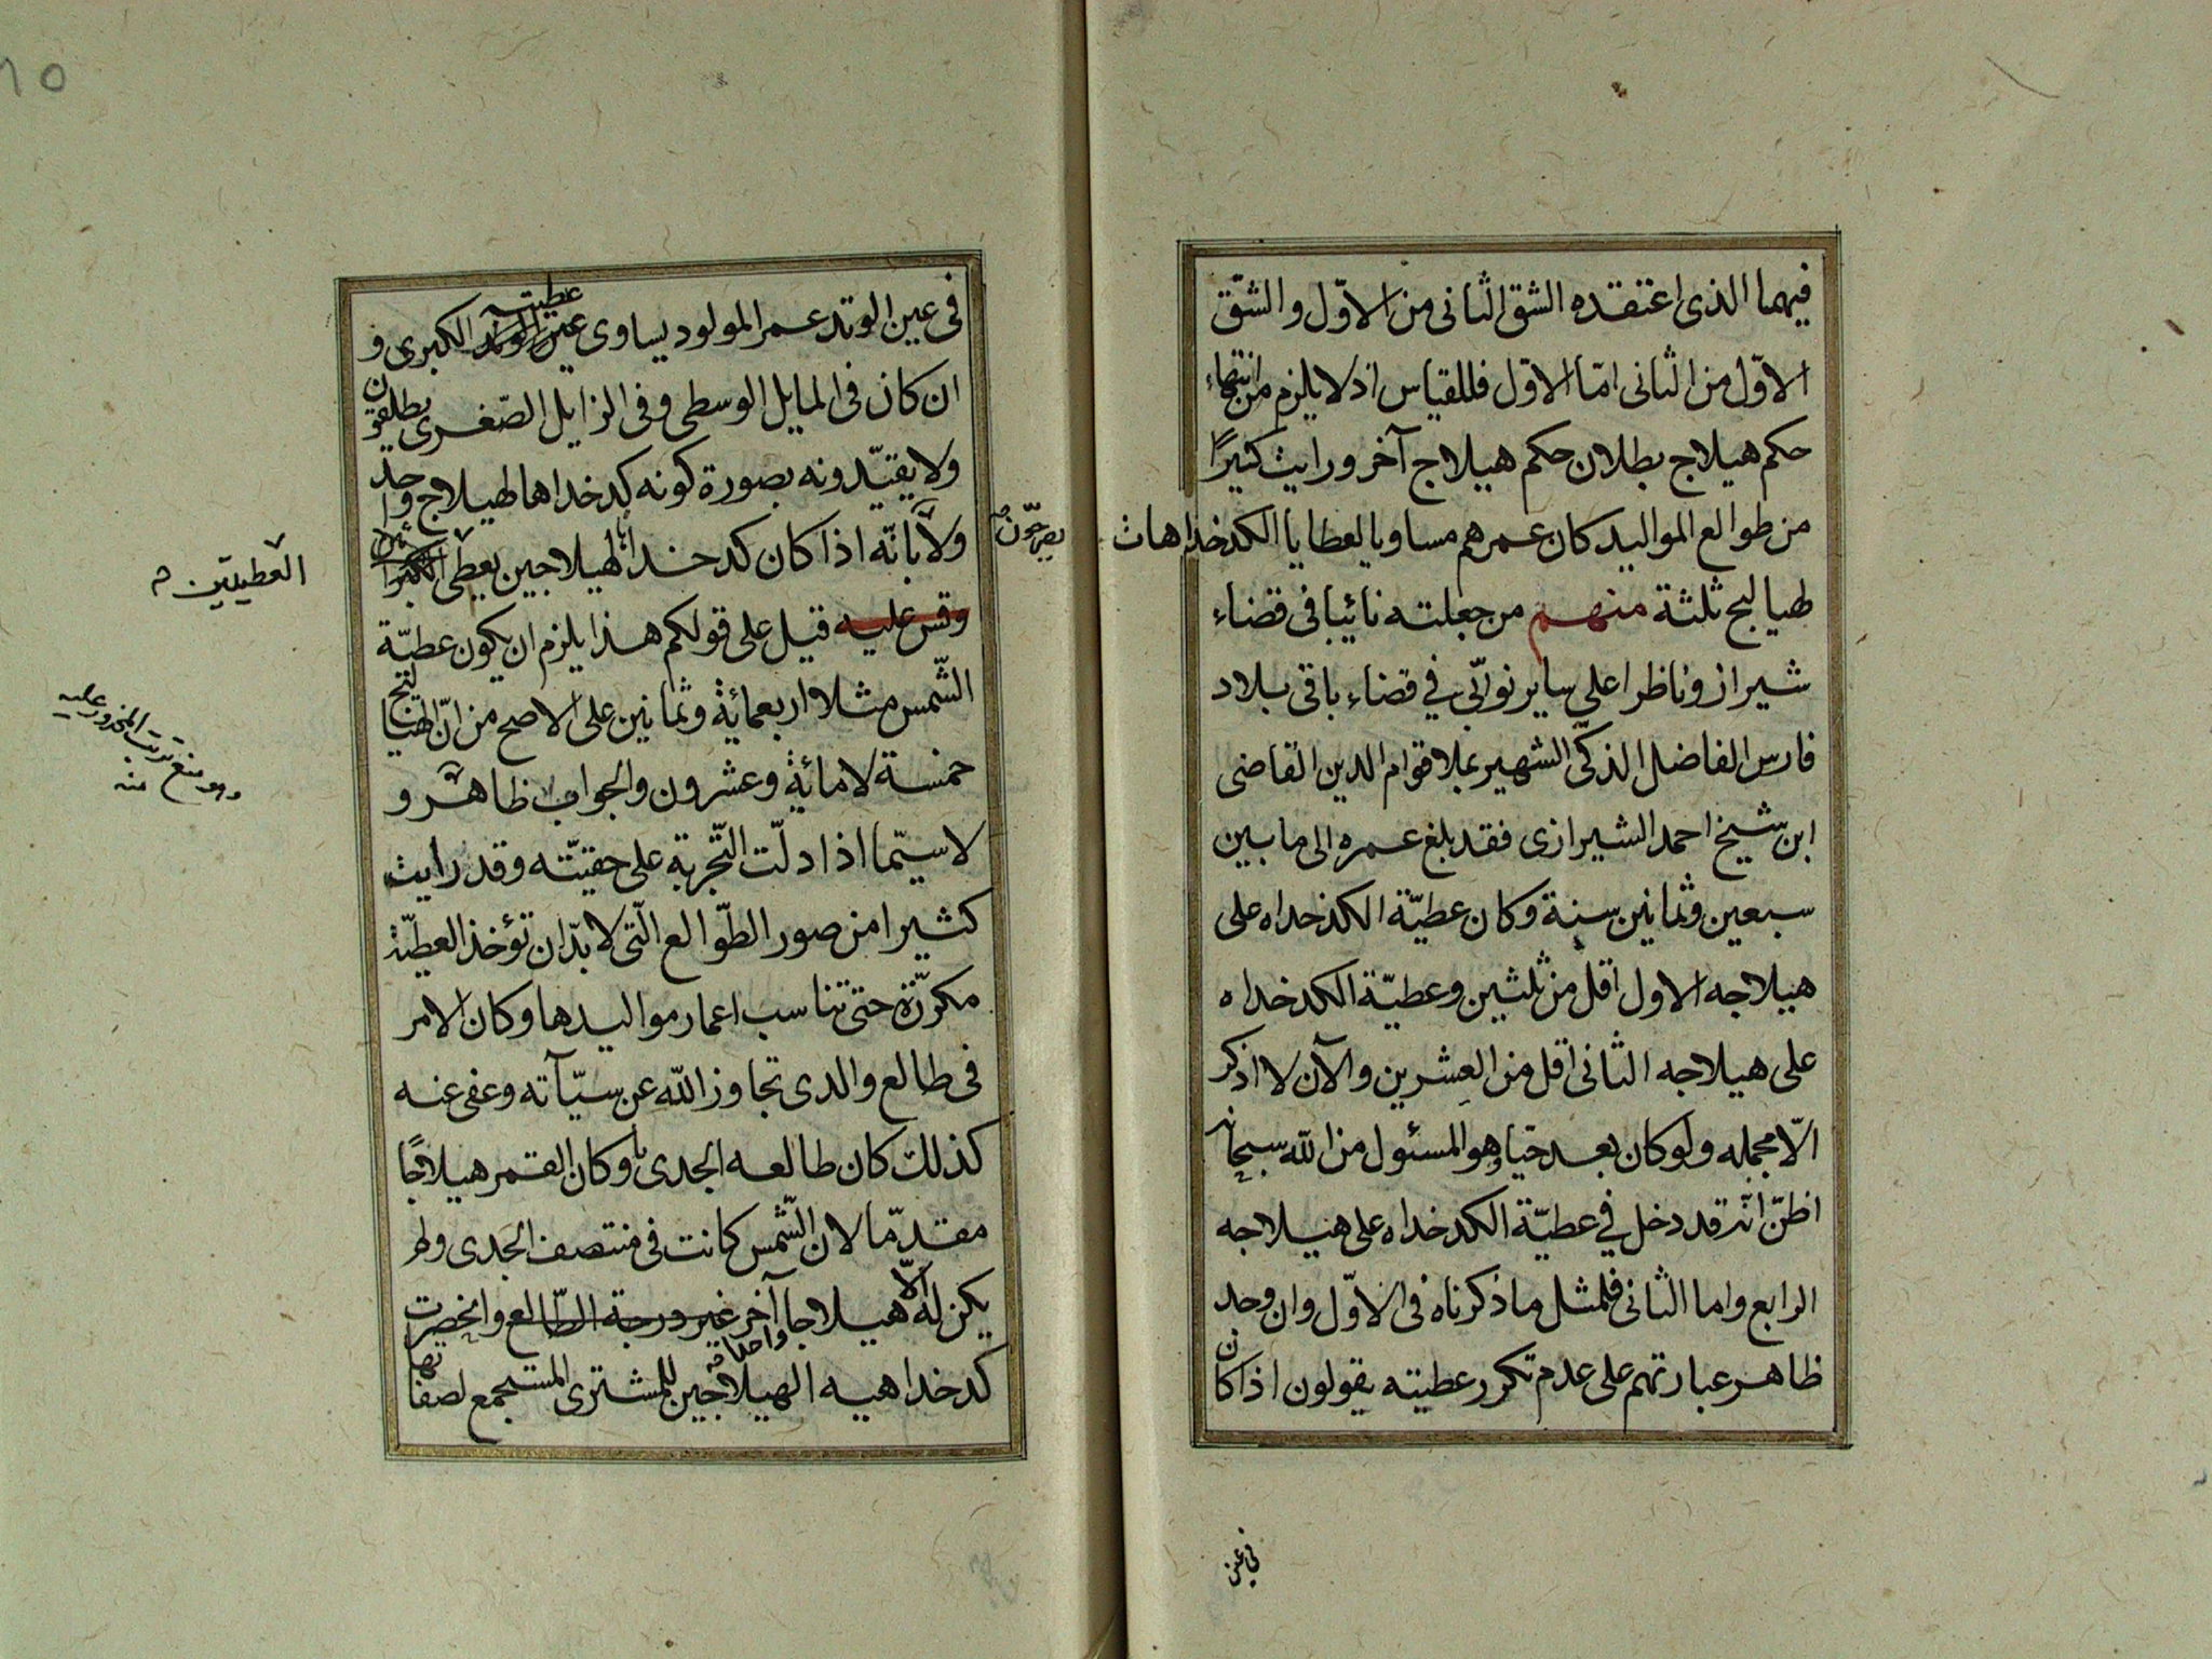 فيهما الذى اعتقده الشق الثانى من الاوّل والشقّ
الاوّل من الثانى امّا الاوّل فللقياس اذ لا يلزم من انتهاء
حكم هيلاج بطلان حكم هيلاج آخر ورايت كثيرًا
من طوالع المواليد كان عمرهم مساويا لعطايا الكدخداهات
لهيالج ثلثة منهم من جعلته نائبا فى قضاء
شيراز وناظرا على ساير نوابى في قضاء باقى بلاد
فارس الفاضل الذكىّ الشهير بملا قوام الدين القاضى
ابن شيخ احمد الشيرازى فقد بلغ عمره الى ما بين
سبعين وثمانين سنة وكان عطيّة الكدخداه على
هيلاجه الاول اقل من ثلثين وعطيّة الكدخداه
على هيلاجه الثانى اقل من العشرين والآن لا اذكر
الّا مجمله ولو كان بعد حيا وهو المسئول من الله سبحانه
اظنّ انّه قد دخل في عطيّة الكدخداه على هيلاجه
الرابع واما الثانى فلمثل ما ذكرناه فى الاوّل وان وجد
ظاهر عبارتهم على عدم تكرر عطيته يقولون اذا كان
فى عين
فى عين الوتد عمر المولود يساوى عين الوتد عطيته الكبرى و
ان كان فى المايل الوسطى وفى الزايل الصّغرى يطلقون
ولا يقيّدونه بصورة كونه كدخداها لهيلاج واحد
ولا بانّه اذا كان كدخدا لهيلاجين يعطى
يصرحّون
العطيتين
وقس عليه قيل على قولكم هذا يلزم ان يكون عطيّة
الشّمس مثلا اربعمائة وثمانين على الاصح من انّ الهيالج
خمسة لا مائة وعشرون والجواب ظاهر و
لا سيّما اذا دلّت التّجربة على حقيّته وقد رايت
كثيرا من صور الطّوالع الّتى لا بدّ ان تؤخذ العطيّة
مكرّرة حتى تناسب اعمار مواليدها وكان الامر
فى طالع والدى تجاوز الله عن سيّآته وعفى عنه
كذلك كان طالعه الجدى وكان القمر هيلاجًا
مقدّما لان الشّمس كانت فى منتصف الجدى ولم
يكن له الّا هيلاجا آخر غير درجة الطّالع وانحصرت
كدخداهيه الهيلاجين للمشترى المستجمع لصفاتها